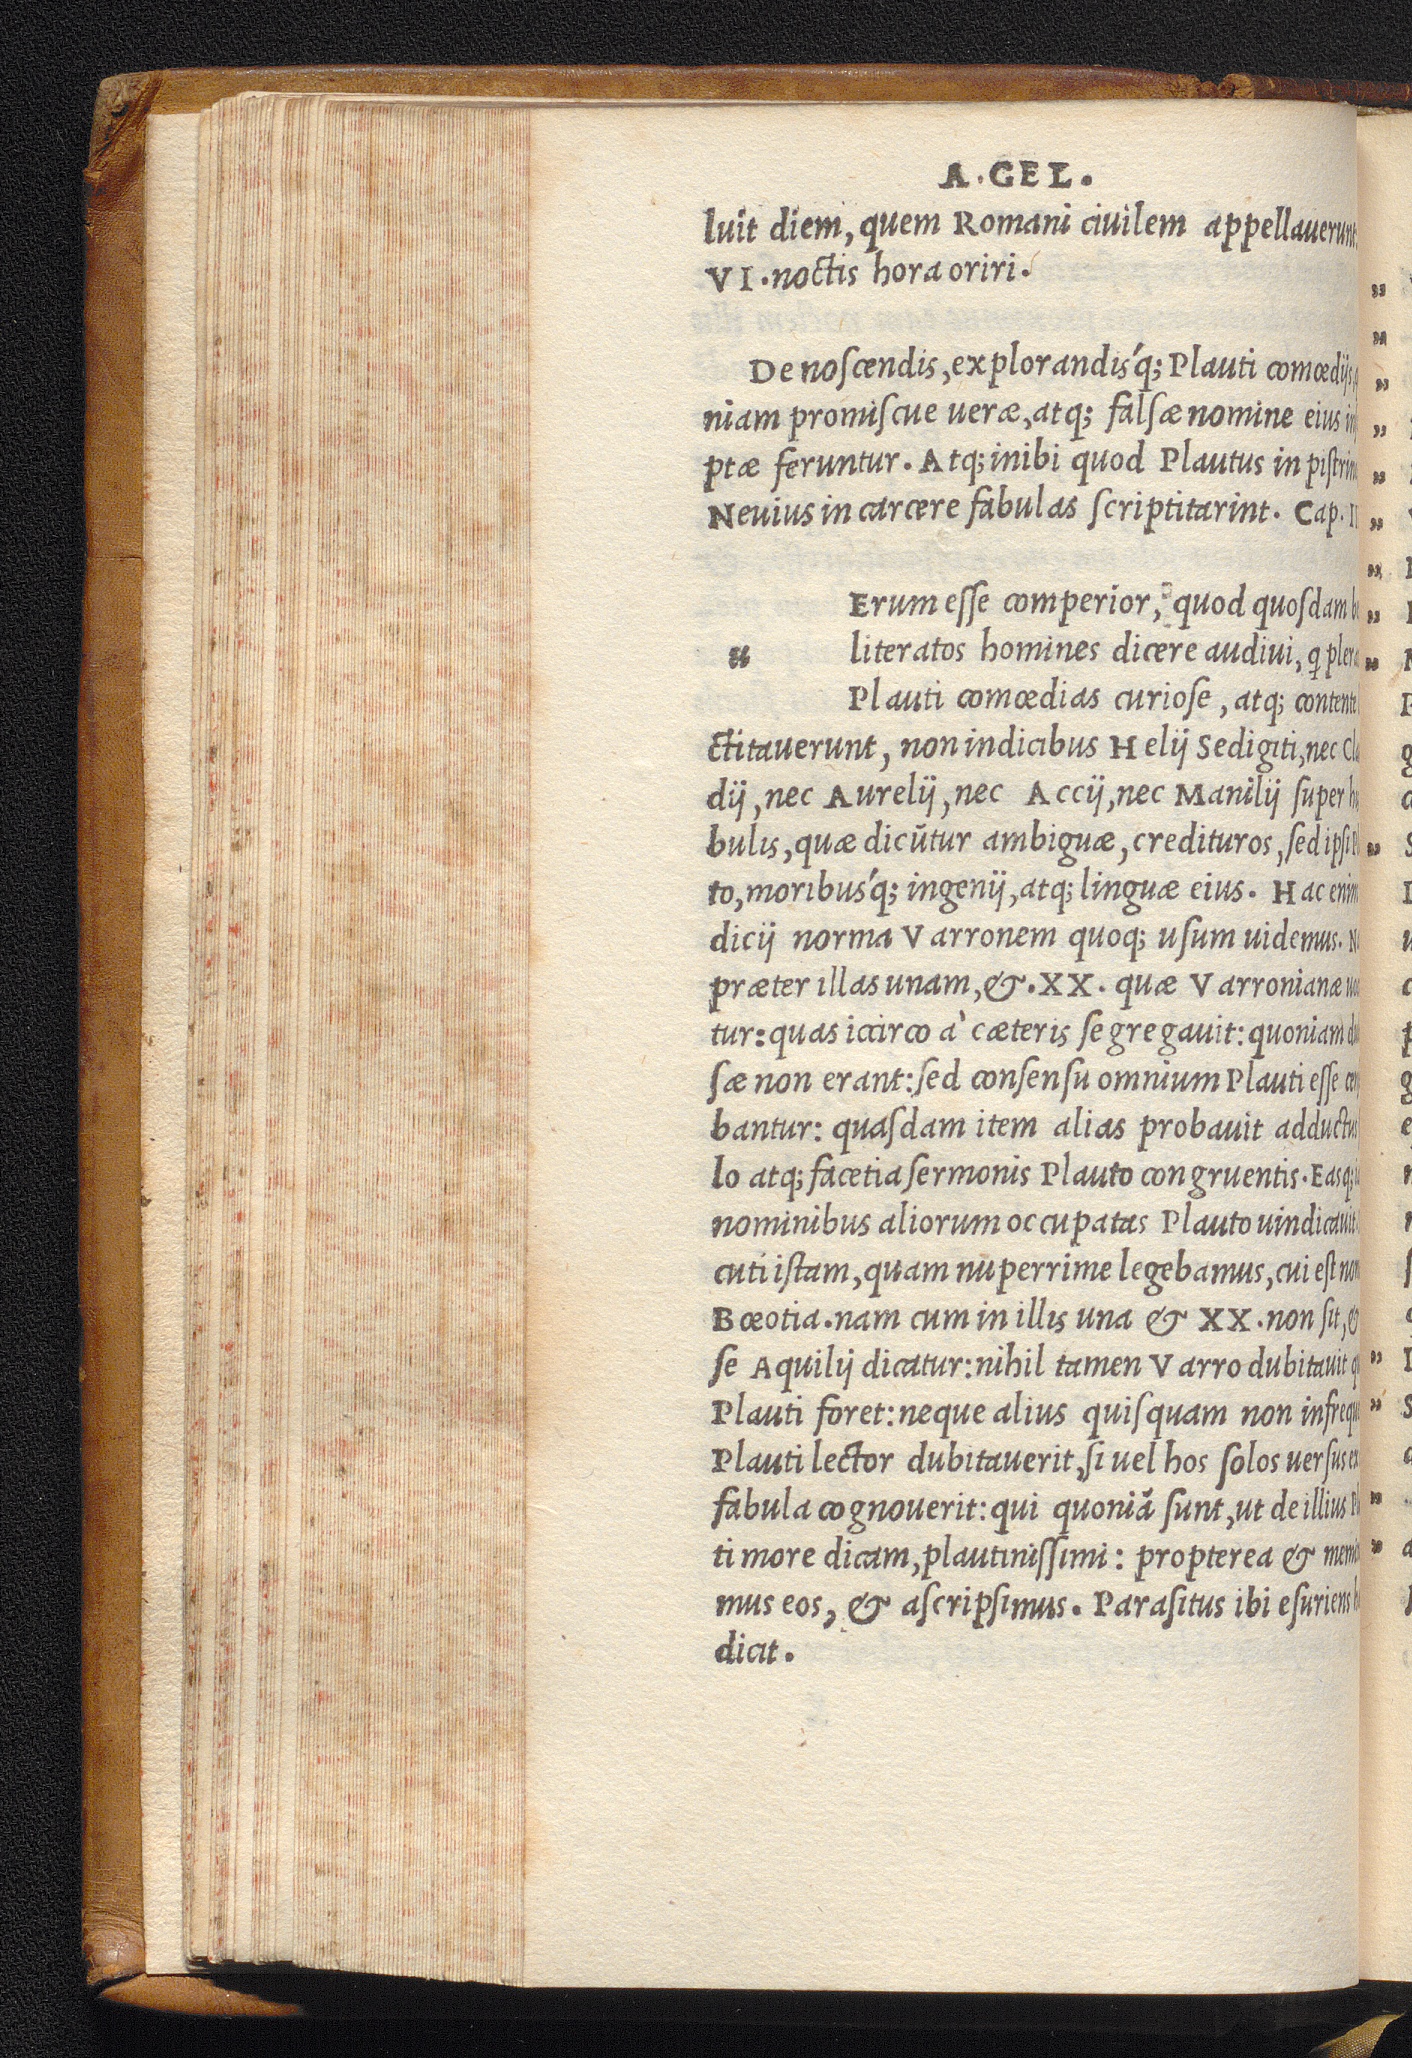 A. GEL.
luit diem, quem Romani ciuilem appellauerunt,
VI. noctis hora oriri.
De noscendis, explorandis'q; Plauti comœdijs,
niam promiscue ueræ, atq; falsæ nomine eius
ptæ feruntur. Atq; inibi quod Plautus in
Neuius in carcere fabulas scriptitarint. Cap.
Erum esse comperior, quod quosdam
u
literatos homines dicere audiui, q
Plauti comœdias curiose, atq; contente
ctitauerunt, non indicibus Helij Sedigiti, nec
dij, nec Aurelij, nec Accij, nec Manilij super
bulis, quæ dicũtur ambiguæ, credituros, sed ipsi
to, moribus'q; ingenij, atq; linguæ eius. Hac enim
dicij norma Varronem quoq; usum uidemus.
præter illas unam, &. XX. quæ Varronianæ
tur: quas iccirco à cæteris segregauit: quoniam
sæ non erant: sed consensu omnium Plauti esse
bantur: quasdam item alias probauit adductus
lo atq; facetia sermonis Plauto congruentis. Easq;
nominibus aliorum occupatas Plauto uindicauit
cuti istam, quam nuperrime legebamus, cui est
Bœotia. nam cum in illis una & XX. non sit, &
se Aquilij dicatur: nihil tamen Varro dubitauit
Plauti foret: neque alius quisquam non
Plauti lector dubitauerit, si uel hos solos uersus ex
fabula cognouerit: qui quoniã sunt, ut de illius
ti more dicam, plautinissimi: propterea &
mus eos, & ascripsimus. Parasitus ibi esuriens
dicit.